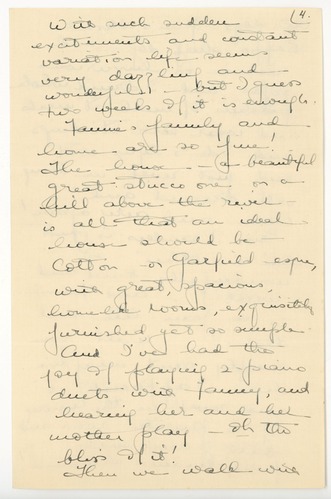 (4.
With such sudden
excitements and constant
variation life seems
very dazzling and
wonderful! - but I guess
two weeks of it is enough.
Fannie's family and
home are so fine!
The house - a beautiful
great stucco one on a
hill above the river -
is all that an ideal
house should be -
Cotton - or Garfield
with great, spacious,
homelike rooms, exquisitely
furnished yet so simple.
And I've had the
joy of playing 2-piano
duets with Fanny, and
hearing her and her
mother play - Oh the
bliss of it!
Then we walk with